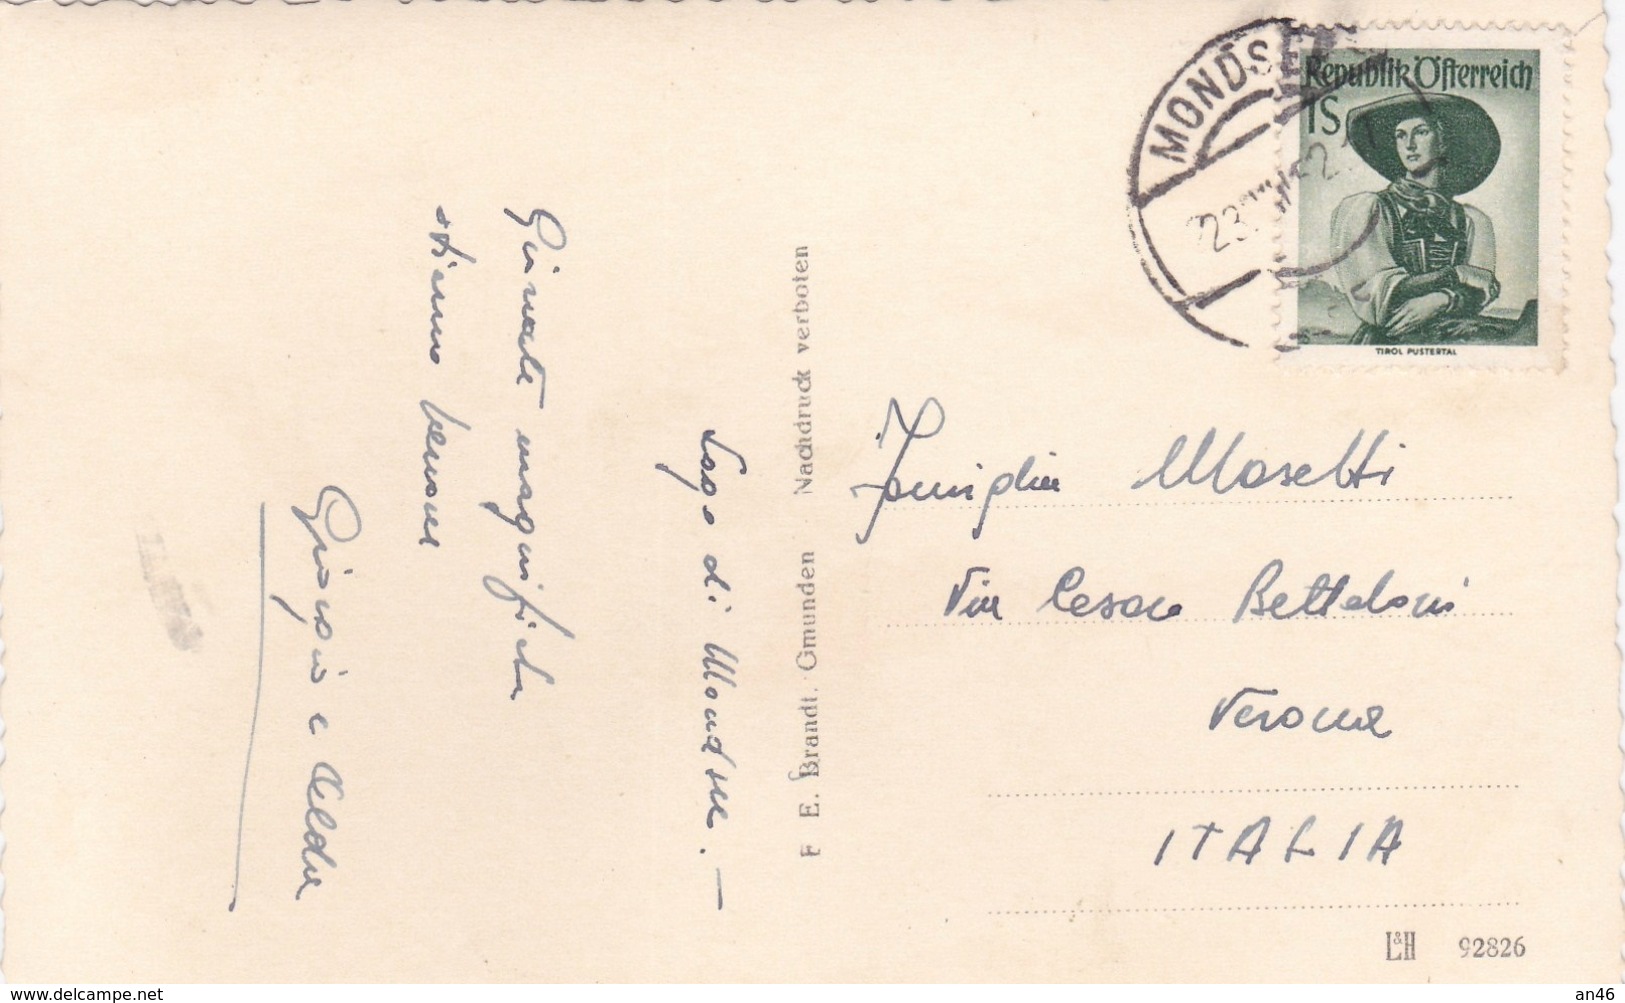 Lago di Mondsee. —
Giornate magnifiche
stiamo benone
Giorgio e Alda
F. E. Brandt, Gmunden Nachdruck verboten
MONDSEE
23. 52
Republik Österreich
1S
TIROL PUSTERTAL
Famiglia Mosetti
Via Cesare Betteloni
Verona
ITALIA
L&H 92826
www.delcampe.net
an46